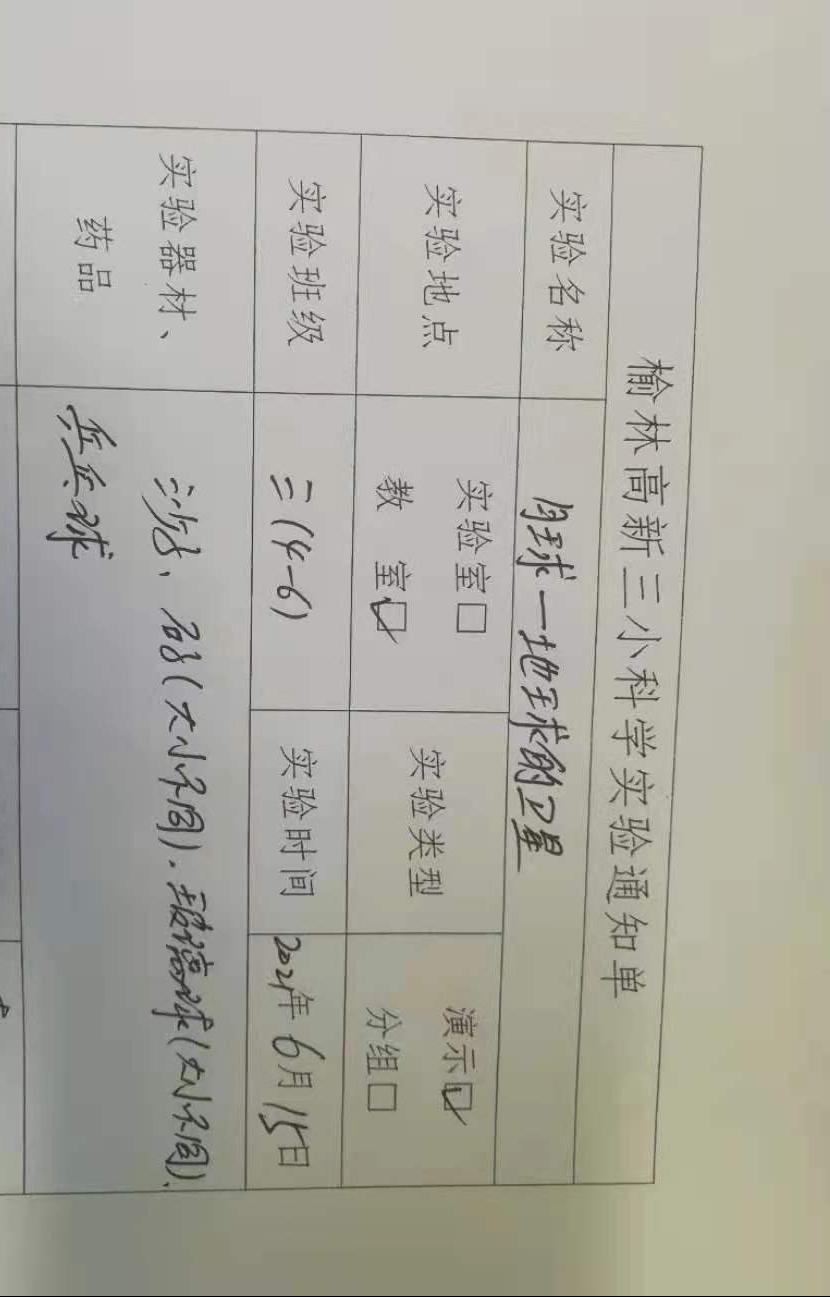 榆林高新三小科学实验通知单
实验名称 月球—地球的卫星
实验地点 实验室□ 教 室☑ 实验类型 演示☑ 分组□
实验班级 三(4-6) 实验时间 2021年6月15日
实验器材、药品 沙子、石子(大小不同)、玻璃球(大小不同)、
乒乓球